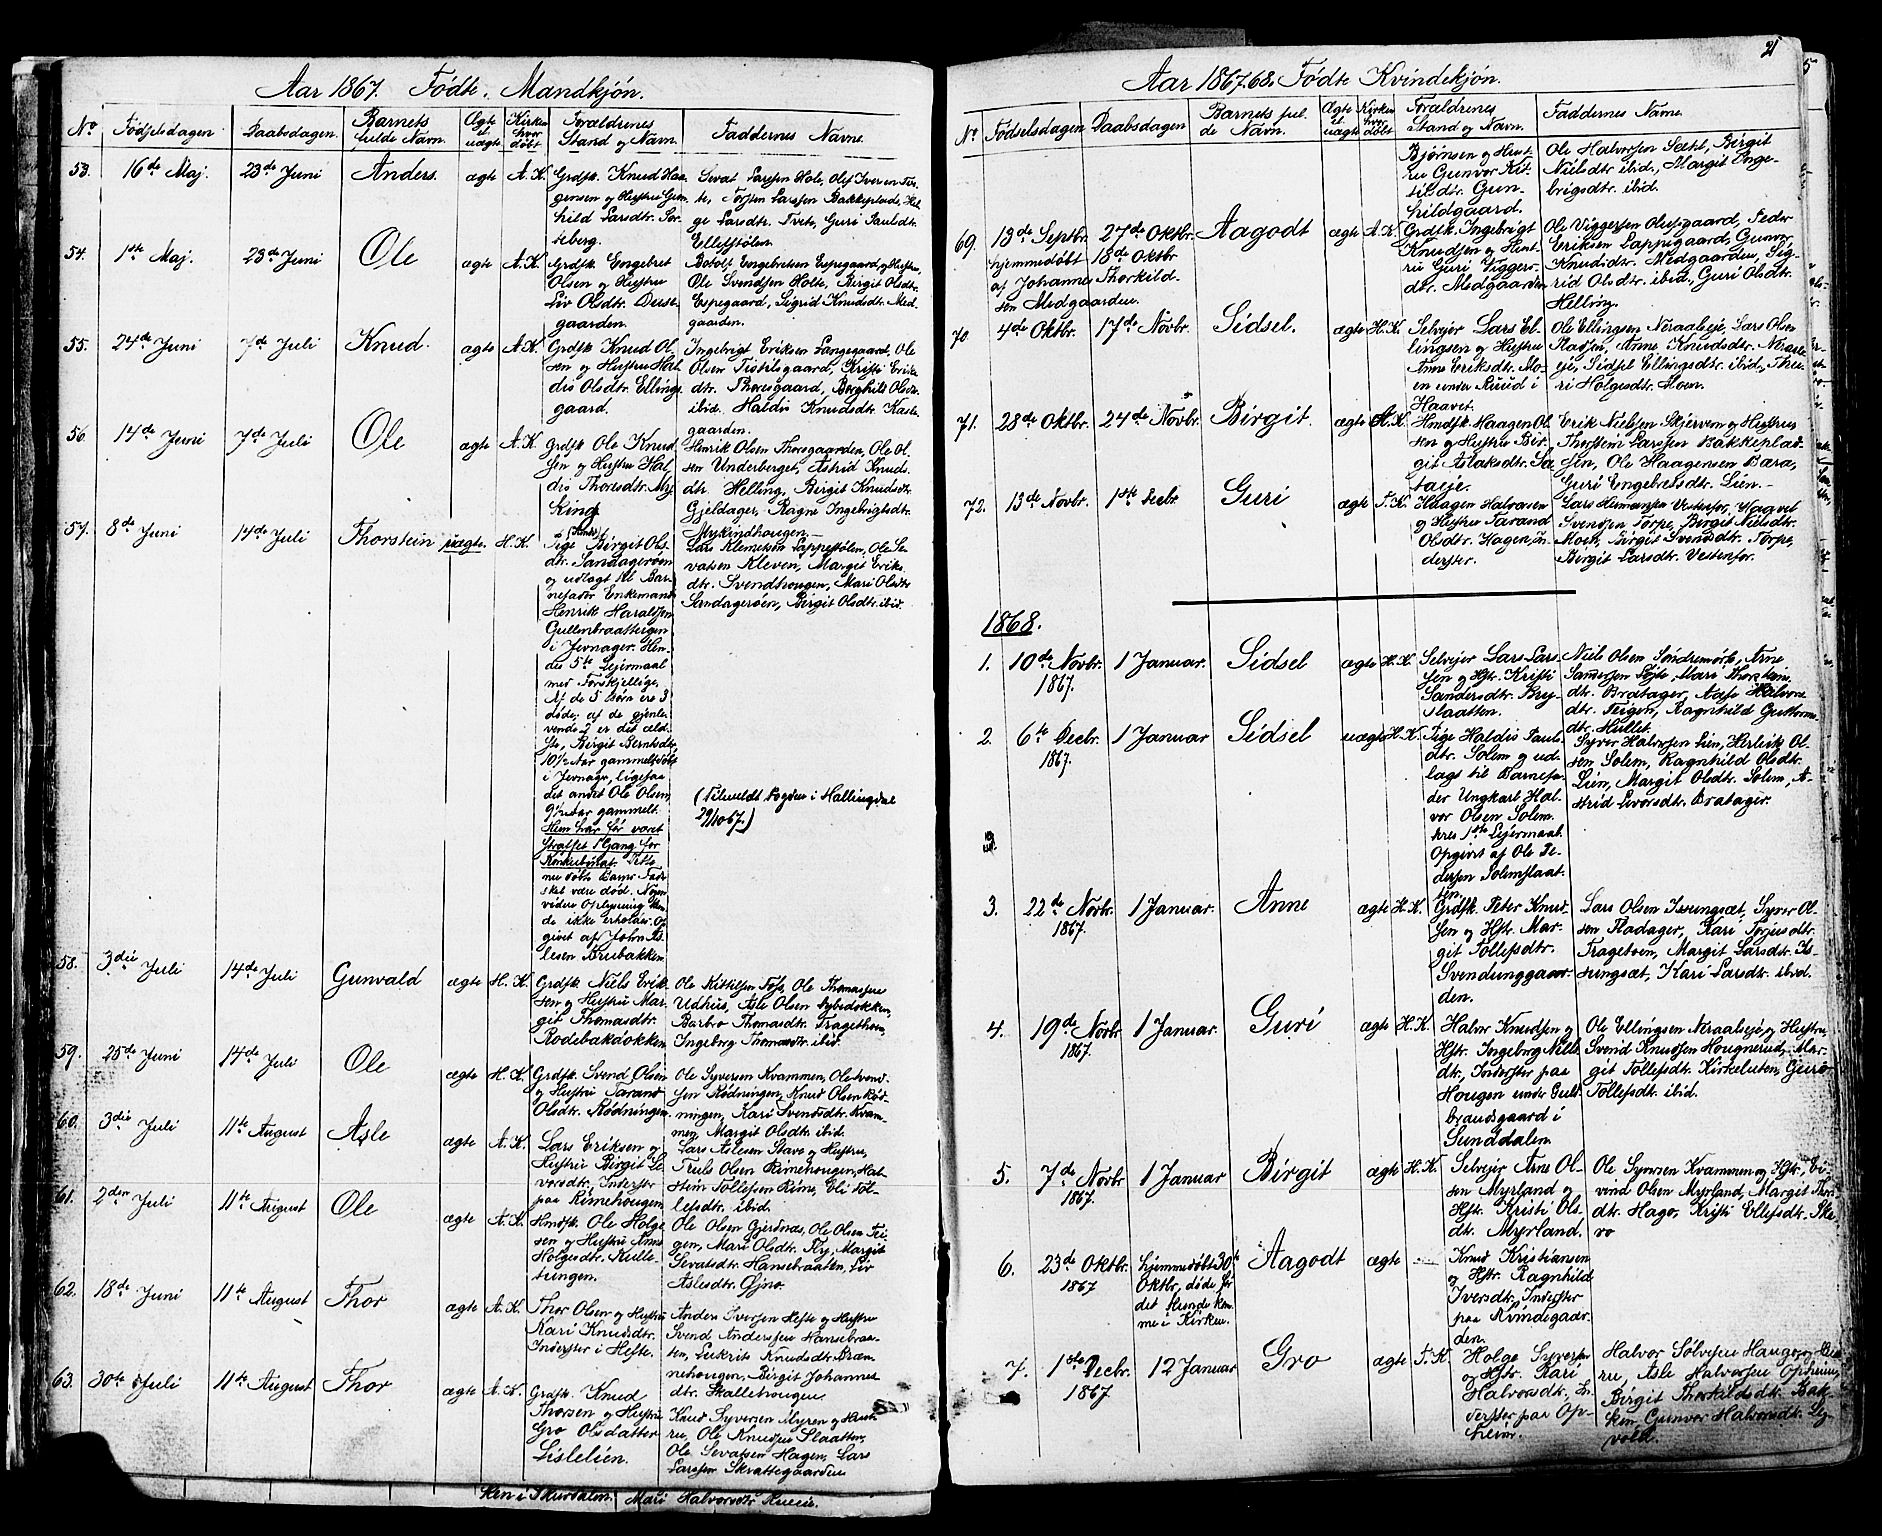 Aar 1867. Fødte. Mandkjøn.
No Fødselsdagen Daabsdagen. Barnets fulde Navn. Ægte el. uægte Kirken hvor døbt Forældrenes Stand og Navn. Faddernes Navne.
53. 16de Maj. 23de Juni Anders. ægte A.K. Grdsk. Knud Haa-
gensen og Hustru Gun-
hild Larsdtr. Sor-
teberg.
Sevat Larssen Hole, Olef Iversen Tor-
Torsten Larssen Bakkeplads, Hel-
ge Larsdtr. Tvete, Guri Paulsdtr.
Ellefstølen.
54. 1ste Maj. 23de Juni Ole ægte A.K. Grdsk. Engebret
Olsen og Hustru
Liv Olsdtr.
gaarden.
Bobolt Engebretsen Espegaard og Hustru,
Ole Svendsen Holte, Birgit Olsdtr.
Espegaard, Sigrid Knudsdtr. Med-
gaarden.
55. 24de Juni 7de Juli Knud. ægte A.K. Grdsk. Knud Ol-
sen og Hustru Hal-
dis Olsdtr. Ellings-
gaard.
Ingebrigt Eriksen Langegaard, Ole
Olsen Tistelsgaard, Kristi Eriks-
dtr. Thoresgaard, Berghilt Olsdtr.
ibid. Haldis Knudsdtr. Karls-
gaarden.
56. 14de Juni 7de Juli Ole ægte A.K. Grdsk. Ole Knud-
sen og Hustru Hal-
dis Thoresdtr. My-
king.
Henrik Olsen Thoresgaarden, Ole Ol-
sen Underberget, Astrid Knuds-
dtr. Helling, Birgit Knudsdtr.
Gjeldager, Ragne Ingebrigtsdtr.
Mykindhougen.
57. 8de Juni 14de Juli Thorstein uægte. H.K. Pige Birgit Ols-
dtr. Sandagerøen
og udlagt til Bar-
nefader Enkemand
Henrik Haraldsen
Gullenbraatbergen
i Jevnager. Hen-
des 5te Lejermaal
med Forskjellige.
Af de 5 Børn ere 3
døde; af de gjenle-
vende 2 er det æld-
ste, Birgit Berntsdtr.
10½ Aar gammelt døbt
i Jevnager, ligesaa
det andet Ole Olsen,
9½ Aar gammelt.
Hun har før været
straffet 1 Gang for
Dette
nu døbte Barns Fader
skal være død. Nogen
videre Oplysning kun-
de ikke erholdes. Op-
givet af John As-
lesen Brubakken.
Lars Klemetsen Lappestølen, Ole Se-
vatsen Kleven, Margit Eriks-
dtr. Svendhougen, Mari Olsdtr.
Sandagerøen, Birgit Olsdtr. ibid.
(Tilmeldt Fogden i Hallingdal
29/10 67.)
58. 3die Juli 14de Juli Gunvald ægte H.K. Grdsk. Niels Erik-
sen og Hustru Mar-
git Thomasdtr.
Rodebakdokken
Ole Kittilsen Foss, Ole Thomassen
Udhus, Asle Olsen Nybedokken,
Barbro Thomasdtr. Tragethoen,
Ingeborg Thomasdtr. ibid.
59. 25de Juni 14de Juli Ole ægte H.K. Grdsk. Svend Olsen
og Hustru Tarand
Olsdtr. Rødningen.
Ole Syversen Kvammen, Ole Svend-
sen Rødningen, Knud Olsen Rød-
ningen, Kari Svendsdtr. Kvam-
men, Margit Olsdtr. ibid.
60. 3die Juli 11te August Asle ægte A.K. Lars Eriksen og
Hustru Birgit Se-
vatsdtr., Inderster
paa Rimehougen
Lars Aslesen Stave og Hustru,
Truls Olsen Rimehougen, Hal-
stein Tollefsen Rime, Eli Tol-
lefsdtr. ibid.
61. 2den Juli 11te August Ole ægte A.K. Hmdsk. Ole Holge-
sen og Hustru Anne
Holgesdtr. Rulle-
tungen.
Ole Olsen Gjerdnæs, Ole Olsen Tei-
gen, Mari Olsdtr. Fly, Margit
Sevatsdtr. Hansebraaten, Liv
Aslesdtr. Øjno.
62. 18de Juni 11te August Thor ægte A.K. Thor Olsen og Hustru
Kari Knudsdtr.
Inderster i Hefte.
Anders Iversen Hefte og Hustru
Svend Andersen Hansebraa-
ten, Lukrits Knudsdtr. Bræn-
nehougen, Birgit Johannes-
dtr. Skallehougen
63. 30te Juli 11te August Thor ægte A.K. Grdsk. Knud
Thorsen og Hustru
Gro Olsdatter
Lislelien.
Knud Syversen Myren og Hust-
ru, Ole Knudsen Slaatten,
Ole Sevatsen Hagen, Lars
Larssen Skrattegaarden
ken i Skurdalen. Mari Halvorsdtr.
21
Aar 1867.68. Fødte Kvindekjøn.
No. Fødselsdagen Daabsdagen. Barnets ful-
de Navn. Ægte el. uægte Kirken hvor døbt Forældrenes Stand og Navn. Faddernes Navne.
Bjørnsen og Hust-
ru Gunvor Kit-
tilsdtr. Gun-
hildgaard.
Ole Halvorsen Sæht, Birgit
Nielsdtr. ibid., Margit Inge-
brigsdtr. ibid.
69. 13de Septbr. 27de Oktbr. Aagodt ægte A.K. Grdsk. Ingebrigt
hjemmedøbt 18de Oktbr
af Johannes Thorkild-
sen Medgaarden.
Knudsen og Hust-
ru Guri Viggers-
dtr. Medgaarden
Ole Viggersen Olufsgaard, Peder
Eriksen Lappegaard, Gunvor
Knudsdtr. Medgaarden, Sig-
rid Olsdtr. ibid., Guri Olsdtr.
Helling.
70. 4de Oktbr. 17de Novbr. Sidsel. ægte H.K. Selvejer Lars El-
lingsen og Hustru
Anne Eriksdtr. Mo-
en under Ruud i
Haavet.
Ole Ellingsen Noraalseje, Lars Olsen
Pladsen, Anne Knudsdtr. Noraals-
eje, Sidsel Ellingsdtr. ibid., Thu-
ri Holgesdtr. Moen.
71. 28de Oktbr. 24de Novbr. Birgit. ægte A.K. Hmdsk. Haagen Ol-
sen og Hustru Bir-
git Aslaksdtr. Sa-
taeje.
Erik Nielsen Skjerven og Hustru
Thorstein Larssen Bakkeplad-
sen, Ole Haagensen Bæra,
Guri Engebretsdtr. Lien.
72. 13de Novbr. 1ste Decbr Guri ægte T.K. Haagen Halvorsen
og Hustru Tarand
Olsdtr. Hagen, In-
derster.
Lars Hermansen Vestenfor,
Svendsen Torpe, Birgit Nielsdtr.
Moen, Birgit Svendsdtr. Torpe,
Birgit Larsdtr. Vestenfor.
1868.
1. 10de Novbr. 1867. 1 Januar. Sidsel ægte H.K. Selvejer Lars Lars-
sen og Hstr. Kristi
Sandersdtr. Bry-
slaatten.
Niels Olsen Søndremørk, Arne
Sandersen Tøjte, Mari Thorsteins-
dtr. Bratager, Aase Halvors-
dtr. Teigen, Ragnhild Guttorms-
dtr. Hullet.
2. 6te Decbr. 1867. 1 Januar Sidsel uægte H.K. Pige Haldis Pauls-
dtr. Solem og ud-
lagt til Barnefa-
der Ungkarl Hal-
vor Olsen Solem.
Dres 1ste Lejermaal.
Opgivet af Ole Pe-
dersen Solemslaat-
ten.
Syver Halvorsen Lien, Herleik Ol-
sen Solem, Ragnhild Olsdtr.
Lien, Margit Olsdtr. Solem, A-
strid Iversdtr. Bratager.
3. 22de Novbr. 1867. 1 Januar. Anne ægte H.K. Grdsk. Peter Knud-
sen og Hstr. Mar-
git Tollefsdtr.
Svendunggaar-
den.
Lars Olsen Issungsæt, Syver Ol-
sen Fladager, Kari Torjusdtr.
Trageteen, Margit Larsdtr. Is-
sungsæt, Kari Larsdtr. ibid.
4. 19de Novbr 1867. 1 Januar Guri ægte H.K. Halvor Knudsen og
Hstr. Ingeborg Niels-
dtr., Inderster paa
Hougen under Guld-
brandsgaard i
Sunddalen.
Ole Ellingsen Noraalseje og Hustru,
Svend Knudsen Hougnerud, Mar-
git Tollefsdtr. Kirketeten, Guro
Tollefsdtr. ibid.
5. 7de Novbr 1867. 1 Januar Birgit ægte H.K. Selvejer Arne Ol-
sen Myrland og
Hstr. Kristi Ols-
dtr. Myrland.
Ole Syversen Kvammen og Hstr., Ei-
vind Olsen Myrland, Margit Thors-
dtr. Hago, Kristi Ellefsdtr. Ska-
ro
6. 23de Oktbr. 1867 hjemmedøbt 30te
Oktbr, døde før
det kunde kom-
me i Kirken.
Aagodt ægte Knud Kristiansen
og Hstr. Ragnhild
Iversdtr., Inderster
paa Kvindegaar-
den.
7. 1ste Decbr. 1867 12 Januar Gro ægte T.K. Holge Syversen
og Hstr. Kari
Halvorsdtr., In-
derster paa Op-
heim.
Halvor Sølvesen Haugen og Hust-
ru, Asle Halvorsen Opheim,
Birgit Thorkildsdtr. Bak-
ken, Gunvor Halvorsdtr. Ly-
vold.